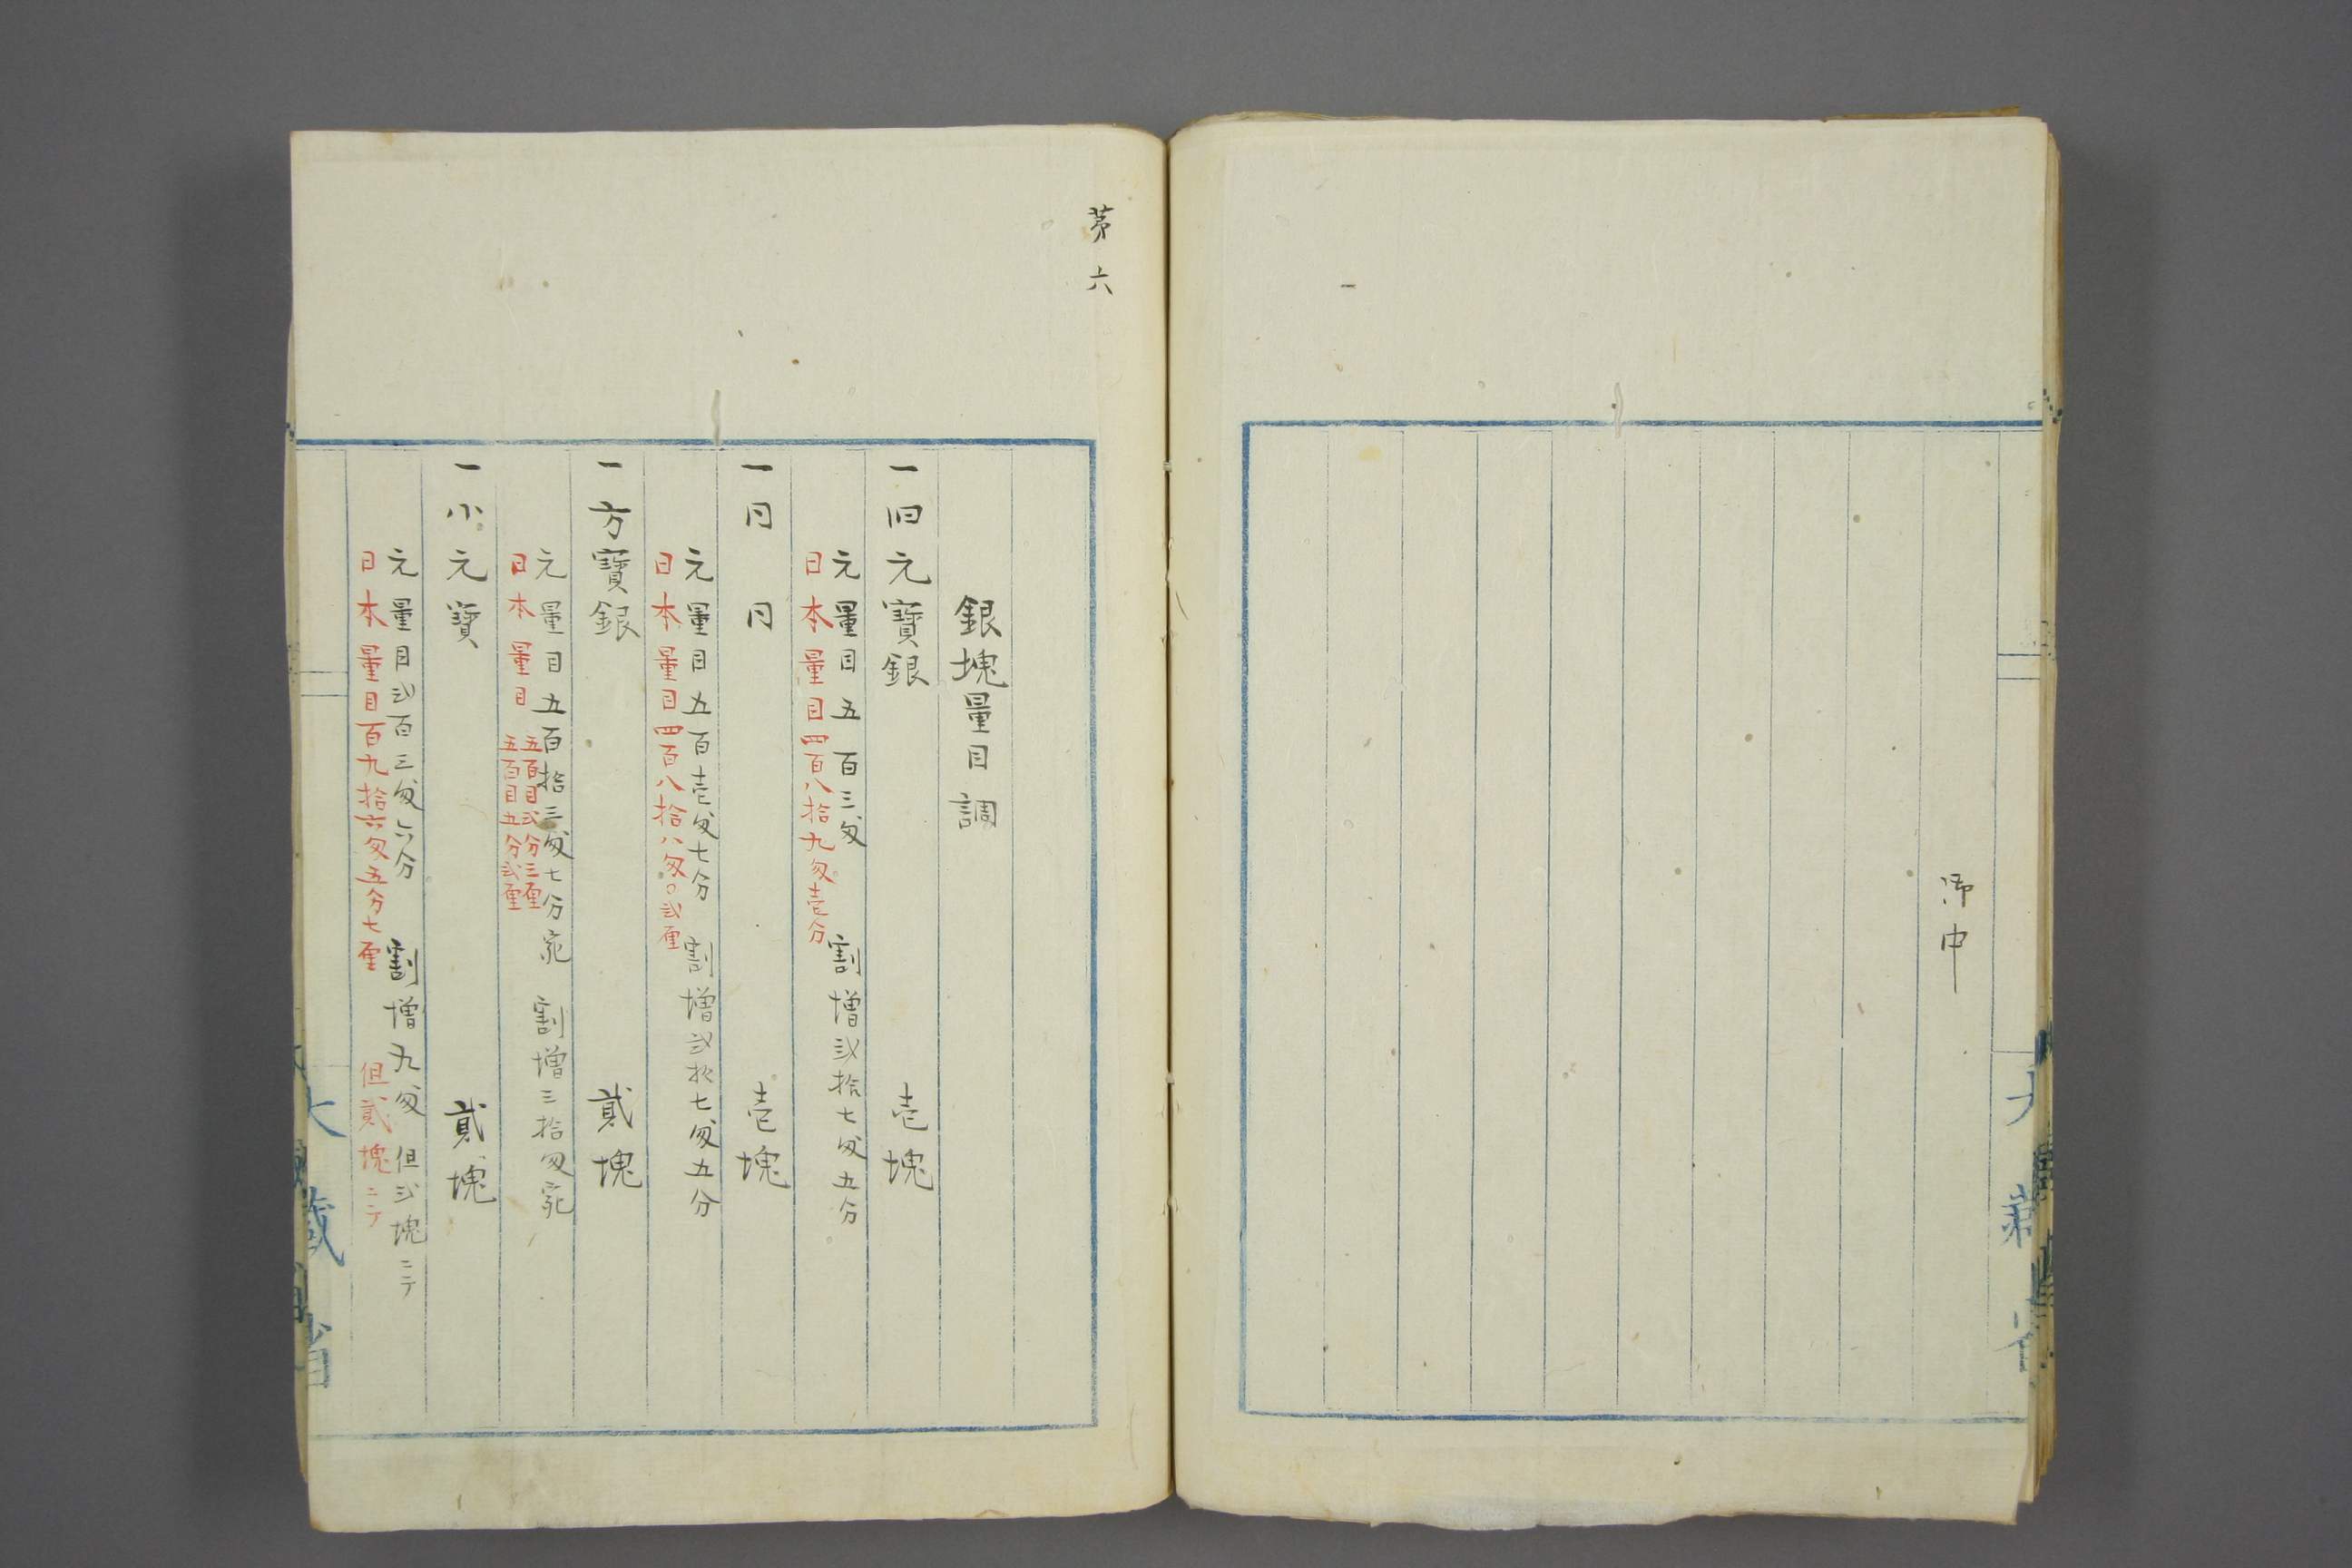 御中
第六
銀塊量目調
一旧元寶銀　壱塊
元量目五百三匁　割増弐拾七匁五分
日本量目四百八拾九匁壱分
一同同　壱塊
元量目五百壱匁七分　割増弐拾七匁五分
日本量目四百八拾八匁〇弐厘
一方寶銀　貳塊
元量目五百拾三匁七分宛　割増三拾匁宛
日本量目
五百目弐分三厘
五百目五分弐厘
一小元寶　貳塊
元量目弐百三匁六分　割増九匁　但弐塊ニテ
日本量目百九拾六匁五分七厘　但貳塊ニテ
大蔵省